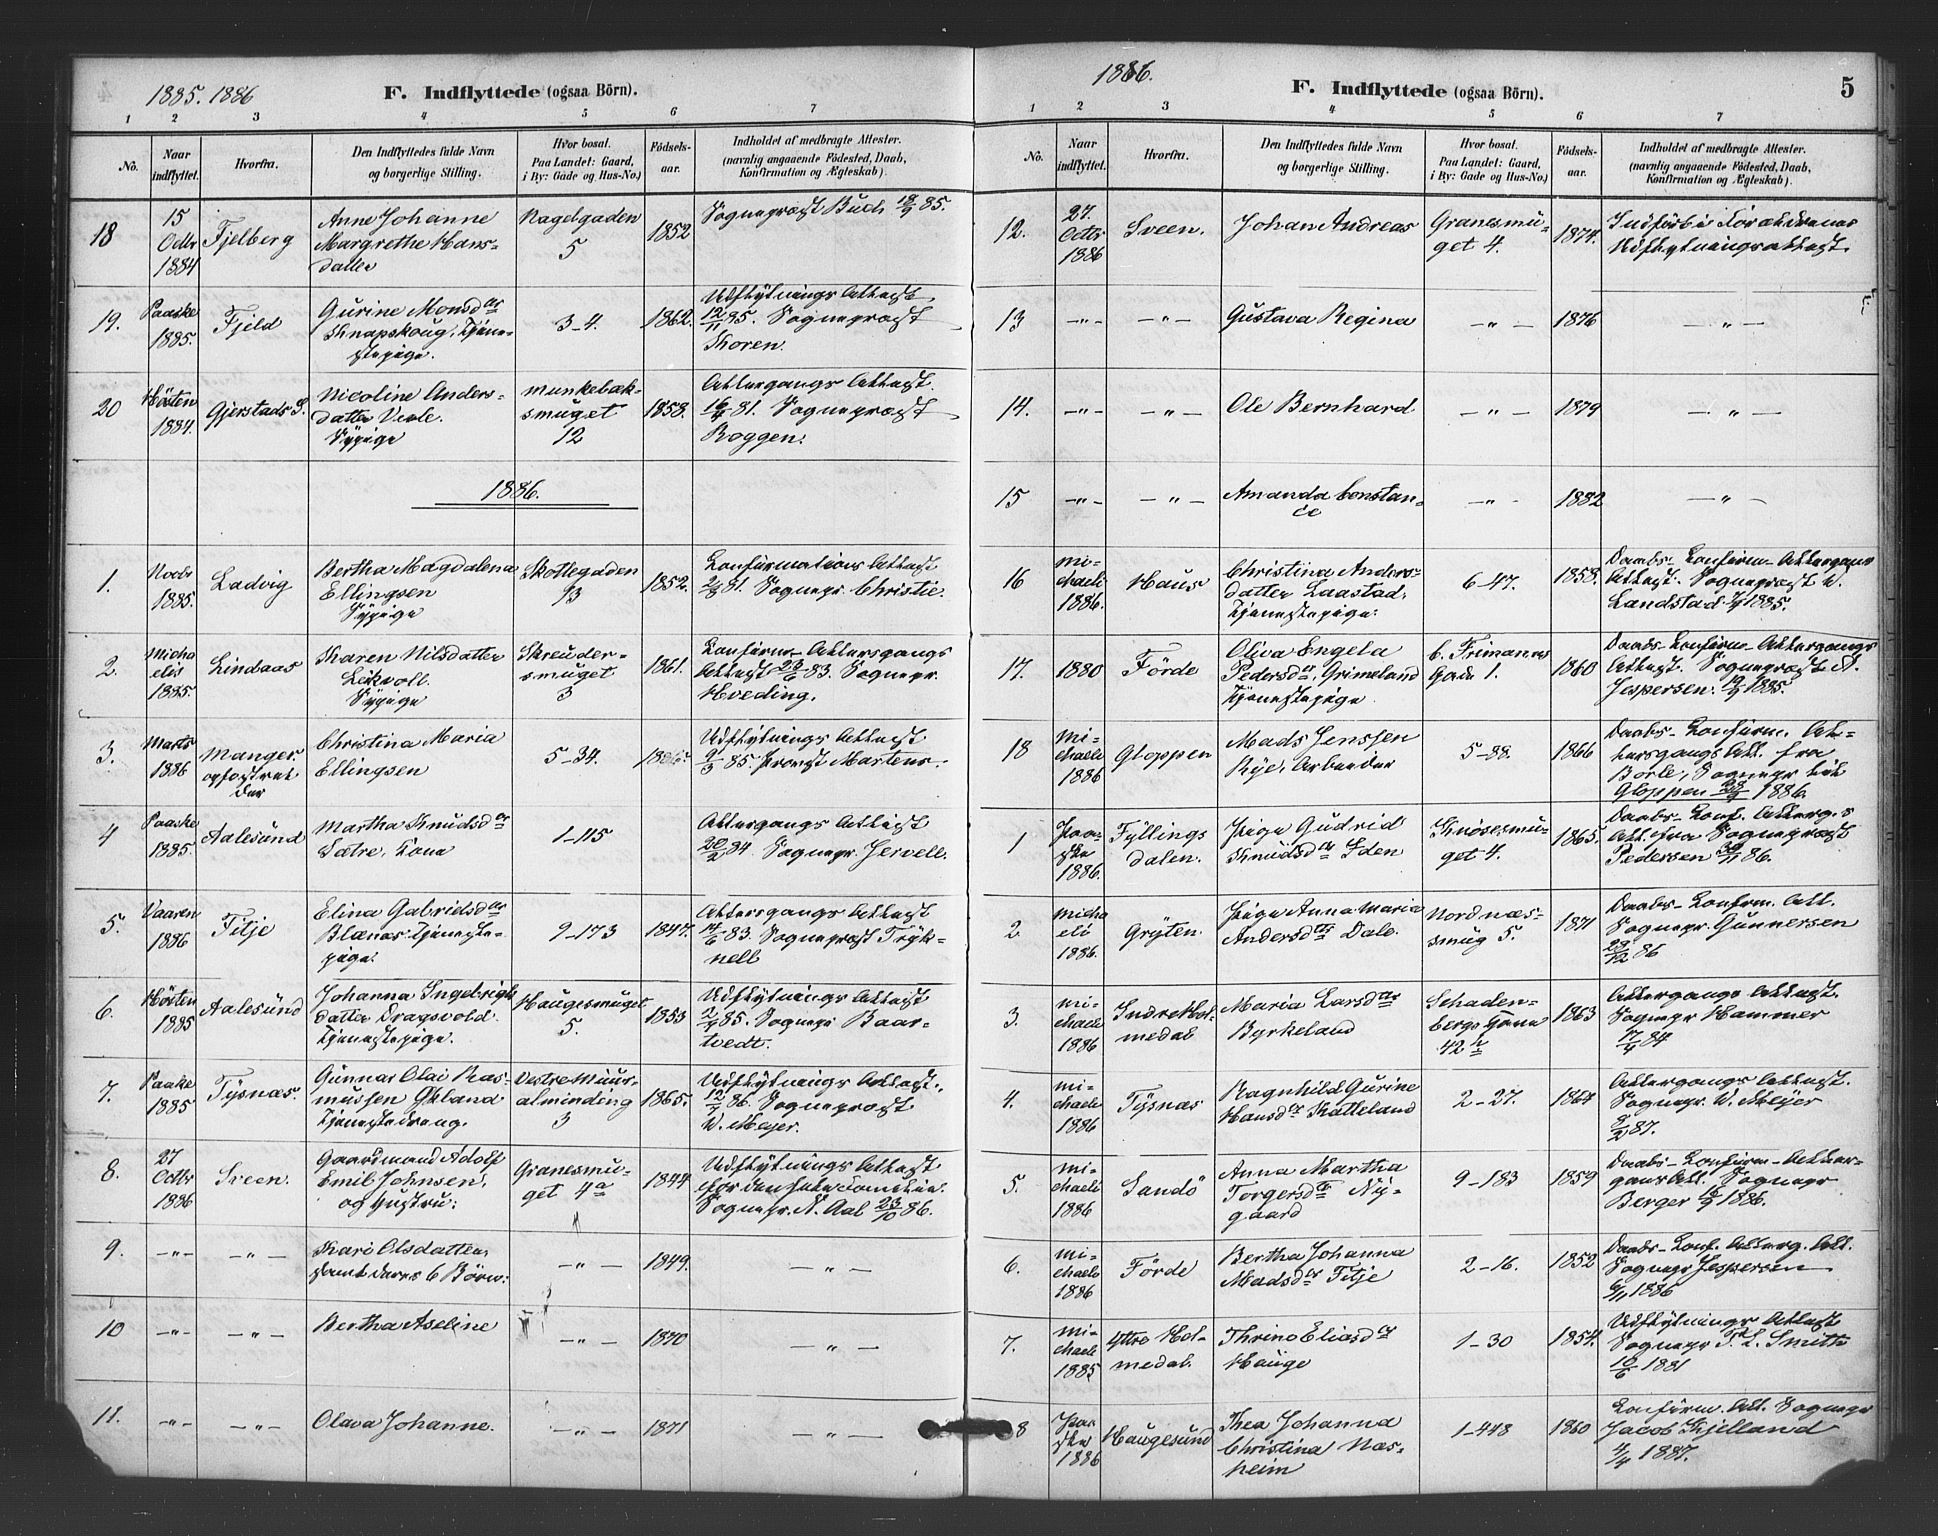 1885. 1886
F. Indflyttede (ogsaa Börn).
1 2 3 4 5 6 7
No.
Naar indflyttet.
Hvorfra.
Den Indflyttedes fulde Navn og borgerlige Stilling.
Hvor bosat. Paa Landet: Gaard, i By: Gade og Hus-No.)
Födsels-aar.
Indholdet af medbragte Attester. (navnlig angaaende Födested, Daab, Konfirmation og Ægteskab).
18 15 Octbr 1884 Fjelberg Anne Johanne Margrethe Hans-datter Nagelgaden 5 1852 Sognepræst Buch 18/9 85.
19. Paaske 1885. Fjeld Gurine Monsdtr Knapskoug, Tjene-stepige. 3-4. 1862. Udflytnings Attest 12/11 85. Sognepræst Koren.
20 Hösten 1884. Gjerstads S. Nicoline Anders-datter Sypige Munkebæk-smuget 12 1858. Attergangs Attest. 16/4 81. Sognepræst Roggen.
1886.
1. Novbr 1885. Ladvig Bertha Magdalena Ellingsen Sypige Skottegaden 13 1852. Konfirmations Attest 81. Sognepr. Christie.
2. Micha elis 1885 Lindaas Karen Nilsdatter Sypige Skreuder-smuget 3 1861. Konfirm- Attergangs Attest 23/6 83. Sognepr. Hveding.
3. Marts 1886 Manger. Christina Maria Ellingsen 5-34. Udflytnings Attest 9/3 85 Provst Martens.
4 Paaske 1885. Aalesund Martha Knudsdtr Sætre, Kone 1-115 Attergangs Attest 20/2 84. Sognepr. Jervell.
5. Vaaren 1886 Fitje Elina Gabrielsdtr Blænes Tjeneste-pige. 9-173 1847. Attergangs Attest 14/6 83. Sognepræst Tryk-nell
6. Hösten 1885 Aalesund Johanna Ingebrigts datter Dragsvold Tjenestepige. Haugesmuget 5. 1853 Udflytnings Attest 85. Sognepr Baar-tvedt.
7. Paaske 1885 Tysnæs. Gunnar Olai Ras-mussen Økland Tjenestedreng. Vestre Muur-alminding 3 1865. Udflytnings Attest. 12/7 86. Sognepræst W. Meyer.
8. 27 Octbr 1886 Sveen. Gaardmand Adolf Emil Johnsen, og Hustru: Granesmu-get 4a 1844 Udflytnings Attest for den hele Familie. Sognepr. N. Aal 23/10 86.
9. -"- -"- Kari Olsdatter, samt deres 6 Börn: -"- 1849. -"-
10 -"- -"- Bertha Aseline -"- 1870 -"-
11. -"- -"- Olava Johanne. -"- 1871 -"-
1886.
F. Indflyttede (ogsaa Börn).
5
1 2 3 4 5 6 7
No.
Naar indflyttet.
Hvorfra.
Den Indflyttedes fulde Navn og borgerlige Stilling.
Hvor bosat. Paa Landet: Gaard, i By: Gade og Hus-No.)
Födsels-aar.
Indholdet af medbragte Attester. (navnlig angaaende Födested, Daab, Konfirmation og Ægteskab).
12. 27. Octbr 1886 Sveen. Johan Andreas Granesmu-get 4. 1874. Indförte i Forældrenes Udflytningsattest.
13 -"- -"- Gustava Regina -"- 1876 -"-
14. -"- -"- Ole Bernhard -"- 1879 -"-
15 -"- -"- Amanda Constan-ce -"- 1882 -"-
16 Mi-chaeli 1886. Haus Christina Anders-datter Laastad, Tjenestepige. 6-47. 1858. Daabs- Konfirm- Attergans Attest. Sognepræst W. Landstad 1885.
17. 1880 Förde Oliva Engela Pedersdtr, Grimeland Tjenestepige. C. Frimanns Gade 1. 1860 Daabs- Konfirm- Attergangs Attest. Sognepræst N. Jespersen. 19/9 1885.
18 Mi-chaeli 1886 Gloppen Mads Jenssen Rye, Arbeider 5-88. 1866 Daabs- Konfirm. At-tergangs Att. fra Sognepr til Gloppen 1886.
1 Paa-ske 1886. Fyllings dalen. Pige Gudrid Knudsdtr Iden Knøsesmu-get 4. 1865. Daabs- Konf. Atterg.s Att. fra Sognepræst Pedersen 30/11 86.
2 Micha eli 1886. Gryten. Pige Anna Maria Andersdtr Dale. Nordnæs-smug 5. 1871 Daabs- Konfirm. Att. Sognepr. Gunnersen 28/12 86
3. Mi-chaeli 1886 Indre Hol-medal Maria Larsdtr Byrkeland 42 1863 Attergangs Attest. Sognepr Hammer 17/4 84
4. Mi-chaeli 1886 Tysnæs Ragnhild Gurine Hansdtr Katteland 2-27. 1864 Attergangs Attest. Sognepr. W. Meyer 9/2 87.
5. Mi-chaeli 1886 Sandö Anna Martha Torgersdtr Ny-gaard 9-183 1859 Daabs- Konfirm- Atter-gans Att. Sognepr Berger 1886.
6. Mi-chaeli 1886 Förde Bertha Johanna Madsdtr Fitje 2-16. 1852 Daabs- Konf. Atterg. Att. Sognepr Jespersen 6/11 1886
7. Mi-chaeli 1885 Yttre Hol-medal. Thrine Eliasdtr Hauge 1-30 1854. Udflytnings Attest Sognepr F. L. Smith 10/6 1881
8 Paa-ske 1886 Haugesund Thea Johanna Christina Næs-heim 1-448 1860 Konfirm. Att. Sognepr Jacob Kjelland 4/4 1887.